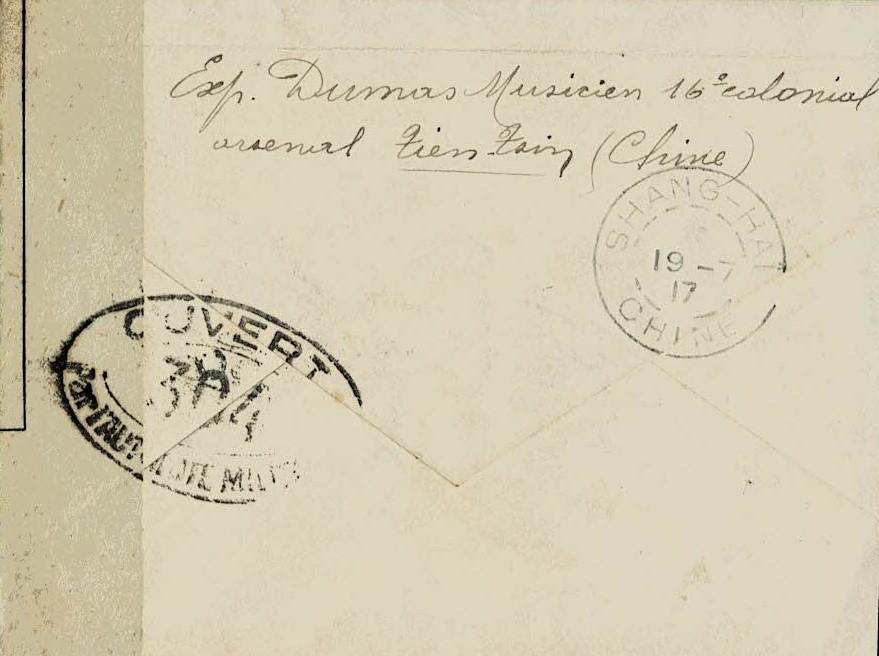 Exp. Dumas Musicien 16e colonial
arsenal Tien Tsin (Chine)
SHANG-HAI
19 -7
17
CHINE
OUVERT
Par l'AUTORITE MILIT